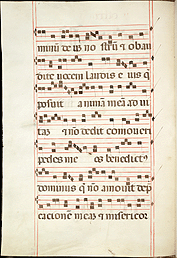 minū de us no strū & obau
dite vocem laudis e ius q
posuit animā meā ad ui
tā & nō dedit cōmoueri
pedes me os benedict9
dominus q nō amouit dep
catione meā & misericor